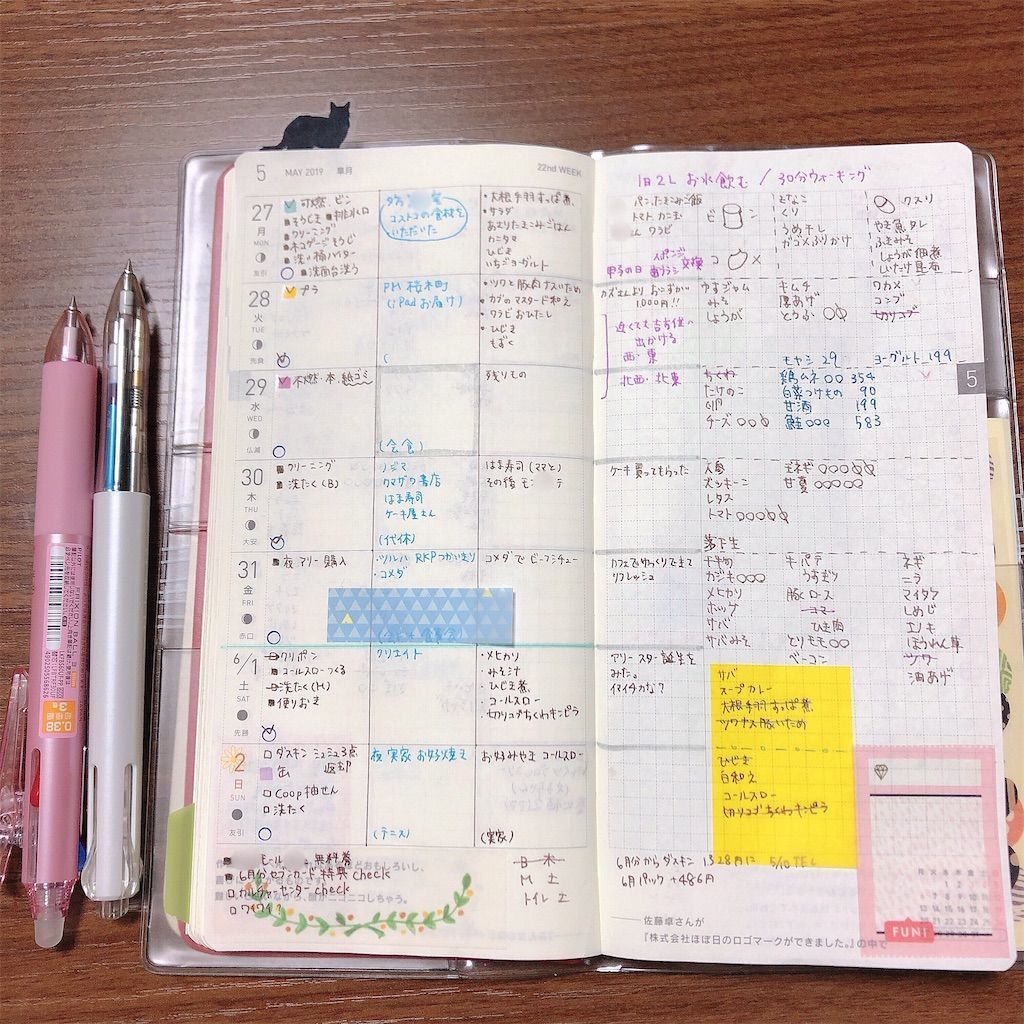 5 MAY 2019 皐月
22nd WEEK
27
月
MON
友引
可燃、ビン
そうじき 排水口
クリーニング
ネコゲージそうじ
洗い桶ハイター
洗面台洗う
コストコの食材を
いただいた
・大根手羽すっぱ煮、
・サラダ
カニタマ
ひじき
いちごヨーグルト
28
火
TUE
先負
プラ
PM 桜木町
(iPadお届け)
・ツナと豚肉ナスいため
・カブのマスタード和え
・ワラビおひたし
・ひじき
・もずく
29
水
WED
仏滅
不燃・本・紙ゴミ
(会食)
残りもの
30
木
THU
大安
クリーニング
洗たく(B)
ノジマ
クマザワ書店
はま寿司
ケーキ屋さん
(代休)
はま寿司(ママと)
31
金
FRI
赤口
夜 アリー 購入
・ツルハ RKPつかいきり
・コメダ
コメダで ビーフシチュー
6/1
土
SAT
先勝
クリポン
コールスローつくる
洗たく(M)
便りおき
クリエイト
・メヒカリ
・みそ汁
・ひじき煮、
・コールスロー
・切りコブちくわキンピラ
2
日
SUN
友引
ダスキン シュシュ3点
缶 返却
Coop 抽せん
洗たく
夜 実家 お好焼き
(テニス)
お好みやき コールスロー
(実家)
モール 無料着
6月分セブンカード特典 check
カルチャーセンター check
ワイワイ?
B 木
M 土
トイレ 土
1日2L お水飲む / 30分ウォーキング
パン、たまごご飯
トマト カニ玉
ワラビ
ビ
きなこ
くり
うめ干し
ガゴメふりかけ
クスリ
やき魚タレ
ふきみそ
しょうが佃煮
しいたけ昆布
甲子の日 歯ブラシ 交換
スポンジ
コ
カズさんより おこずかい
1000円!!
ゆずジャム
みそ
しょうが
キムチ
厚あげ
とうふ
ワカメ
コンブ
切りコブ
近くても吉方位へ
出かける
西・東
北西・北東
モヤシ 29 ヨーグルト 199
5
ちくわ
たけのこ
卵
チーズ
鶏ムネ 354
白菜つけもの 90
甘酒 199
鮭 583
ケーキ買ってもらった
人参
ズッキーニ
レタス
トマト
玉ネギ
甘夏
落下生
カフェでゆっくりできて
リフレッシュ
カジキ
メヒカリ
ホッケ
サバ
サバみそ
牛バテ
うすぎり
豚ロース
コマ
ひき肉
とりモモ
ベーコン
ネギ
ニラ
マイタケ
しめじ
エノキ
ほうれん草
ツナ
油あげ
アリー スター誕生を
みた。
イマイチかな?
サバ
スープカレー
大根手羽すっぱ煮
ツナナス豚いため
ひじき
白和え
コールスロー
切りコブちくわキンピラ
6月分からダスキン 1328円に 5/10 TEL
6月パック +486円
FUN!
佐藤卓さんが
『株式会社ほぼ日のロゴマークができました。』の中で
PILOT
FRIXION BALL 3
0.38